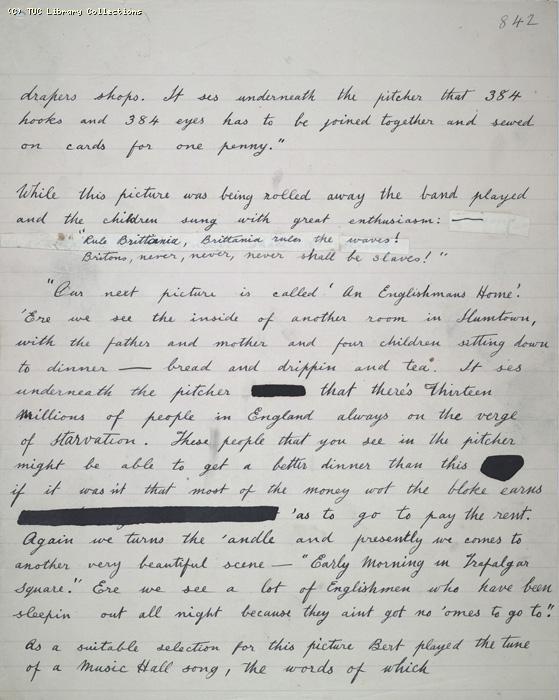 (C) TUC Library Collections
842
drapers shops. It ses underneath the pitcher that 384
hooks and 384 eyes has to be joined together and sewed
on cards for one penny."
While this picture was being rolled away the band played
and the children sung with great enthusiasm: —
"Rule Brittania, Brittania rules the waves!
Britons, never, never, never shall be slaves!"
"Our next picture is called 'An Englishmans Home'.
'Ere we see the inside of another room in Slumtown,
with the father and mother and four children sitting down
to dinner — bread and drippin and tea. It ses
underneath the pitcher that there's Thirteen
Millions of people in England always on the verge
of Starvation. These people that you see in the pitcher
might be able to get a better dinner than this
if it wasn't that most of the money wot the bloke earns
'as to go to pay the rent.
Again we turns the 'andle and presently we comes to
another very beautiful scene — "Early Morning in Trafalgar
Square." Ere we see a lot of Englishmen who have been
sleepin out all night because they aint got no 'omes to go to."
As a suitable selection for this picture Bert played the tune
of a Music Hall song, the words of which